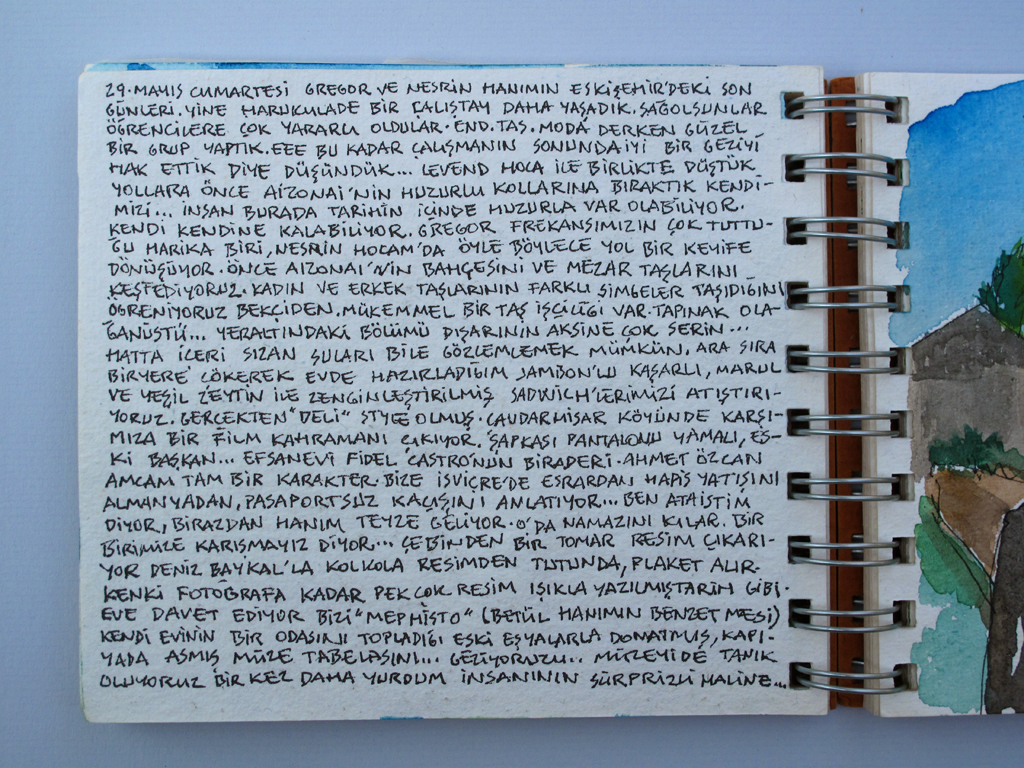 29. MAYIS CUMARTESİ GREGOR VE NESRİN HANIMIN ESKİŞEHİR'DEKİ SON
GÜNLERİ. YİNE HARUKULADE BİR ÇALIŞTAY DAHA YAŞADIK. SAĞOLSUNLAR
ÖĞRENCİLERE ÇOK YARARLI OLDULAR. END. TAS. MODA DERKEN GÜZEL
BİR GRUP YAPTIK. EEE BU KADAR ÇALIŞMANIN SONUNDA İYİ BİR GEZİYİ
HAK ETTİK DİYE DÜŞÜNDÜK... LEVEND HOCA İLE BİRLİKTE DÜŞTÜK
YOLLARA ÖNCE AİZONAİ'NİN HUZURLU KOLLARINA BIRAKTIK KENDİ-
MİZİ... İNSAN BURADA TARİHİN İÇİNDE HUZURLA VAR OLABİLİYOR.
KENDİ KENDİNE KALABİLİYOR. GREGOR FREKANSIMIZIN ÇOK TUTTU-
ĞU HARİKA BİRİ, NESRİN HOCAM'DA ÖYLE BÖYLECE YOL BİR KEYİFE
DÖNÜŞÜYOR. ÖNCE AIZONAI'NİN BAHÇESİNİ VE MEZAR TAŞLARINI
KEŞFEDİYORUZ. KADIN VE ERKEK TAŞLARININ FARKLI SİMGELER TAŞIDIĞINI
ÖĞRENİYORUZ BEKÇİDEN. MÜKEMMEL BİR TAŞ İŞÇİLİĞİ VAR. TAPINAK OLA-
ĞANÜSTÜ... YERALTINDAKİ BÖLÜMÜ DIŞARININ AKSİNE ÇOK SERİN...
HATTA İÇERİ SIZAN SULARI BİLE GÖZLEMLEMEK MÜMKÜN. ARA SIRA
BİRYERE ÇÖKEREK EVDE HAZIRLADIĞIM JAMBON'LU KAŞARLI, MARUL
VE YEŞİL ZEYTİN İLE ZENGİNLEŞTİRİLMİŞ SADWİCH'LERİMİZİ ATIŞTIRI-
YORUZ. GERÇEKTEN "DELİ" STYLE OLMUŞ. ÇAVDARHİSAR KÖYÜNDE KARŞI-
MIZA BİR FİLM KAHRAMANI ÇIKIYOR. ŞAPKASI PANTALONU YAMALI, ES-
Kİ BAŞKAN... EFSANEVİ FİDEL CASTRO'NUN BİRADERİ. AHMET ÖZCAN
AMCAM TAM BİR KARAKTER. BİZE İSVİÇRE'DE ESRARDAN HAPİS YATIŞINI
ALMANYADAN, PASAPORTSUZ KAÇIŞINI ANLATIYOR... BEN ATAİSTİM
DİYOR, BİRAZDAN HANIM TEYZE GELİYOR. O'DA NAMAZINI KILAR. BİR
BİRİMİZE KARIŞMAYIZ DİYOR... CEBİNDEN BİR TOMAR RESİM ÇIKARI-
YOR DENİZ BAYKAL'LA KOLKOLA RESİMDEN TUTUNDA, PLAKET ALIR-
KENKİ FOTOĞRAFA KADAR PEK ÇOK RESİM IŞIKLA YAZILMIŞ TARİH GİBİ.
EVE DAVET EDİYOR BİZİ "MEPHİSTO" (BETÜL HANIMIN BENZETMESİ)
KENDİ EVİNİN BİR ODASINI TOPLADIĞI ESKİ EŞYALARLA DONATMIŞ, KAPI-
YADA ASMIŞ MÜZE TABELASINI... GEZİYORUZ... MÜZEYİ DE TANIK
OLUYORUZ BİR KEZ DAHA YURDUM İNSANININ SÜRPRİZLİ HALİNE...